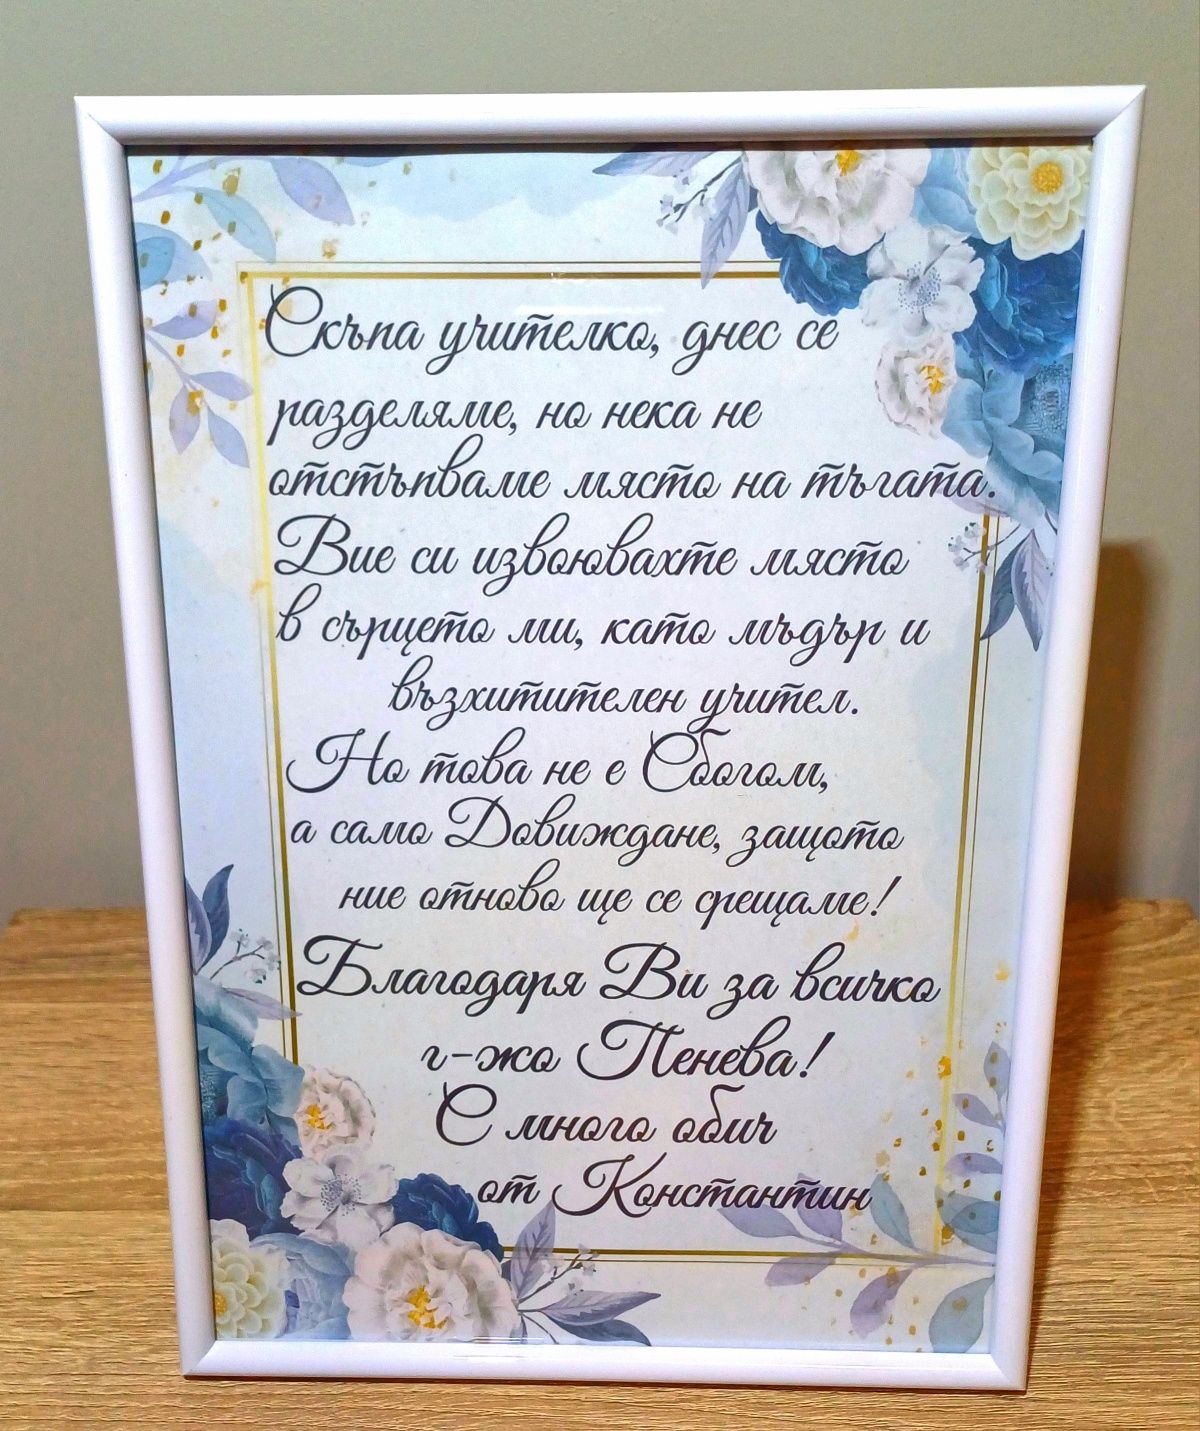 Скъпа учителко, днес се
разделяме, но нека не
отстъпваме място на тъгата.
Вие си извоювахте място
в сърцето ми, като мъдър и
възхитителен учител.
Но това не е Сбогом,
а само Довиждане, защото
ние отново ще се срещаме!
Благодаря Ви за всичко
г-жо Пенева!
С много обич
от Константин